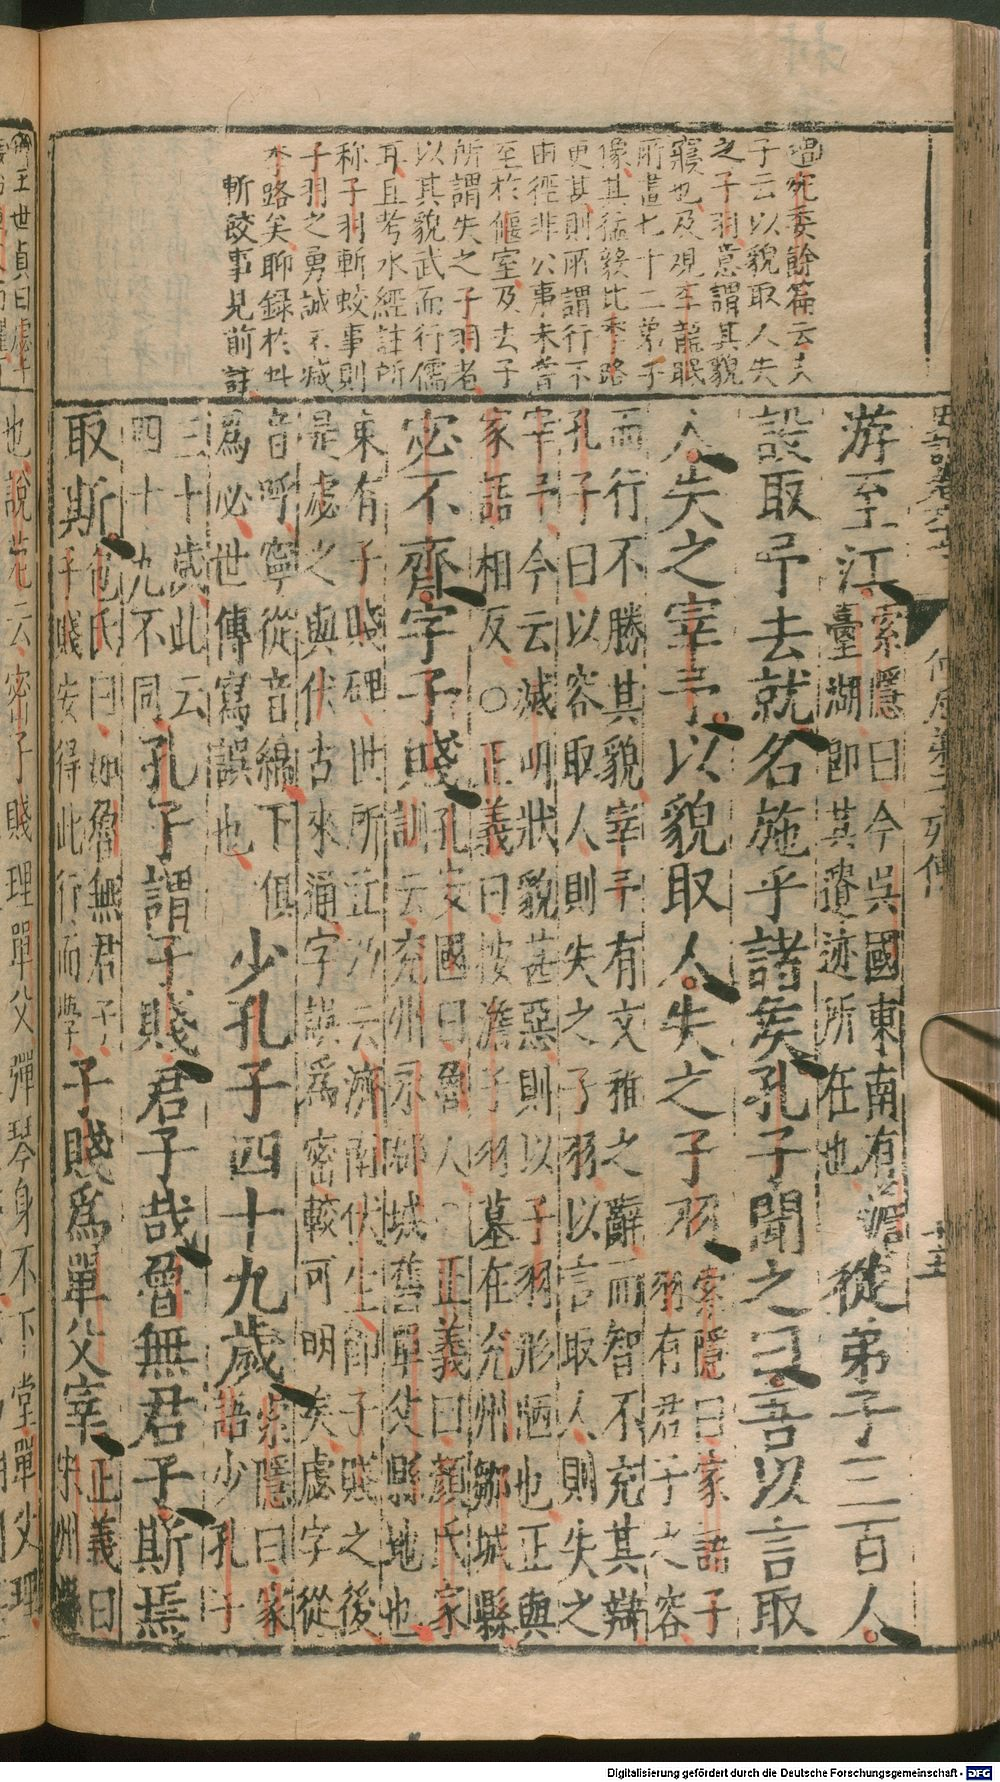 宛委餘篇云夫
子云以貌取人失
之子羽意謂其貌
寢也及覌李龍眠
所畫七十二弟子
像其猛毅比季路
更甚則所謂行不
由徑非公事未嘗
至於偃室及去子
所謂失之子羽者
以其貌武而行儒
耳且考水經註所
称子羽斬蛟事則
子羽之勇誠不減
季路矣聊録於此
斬蛟事見前註
游至江索隱曰今呉國東南有澹臺湖即其遺迹所在也從弟子三百人
設取予去就名施乎諸矦孔子聞之曰吾以言取
人失之宰予以貌取人失之子羽索隱曰家語子羽有君子之容
而行不勝其貌宰予有文雅之辭而智不充其辯
孔子曰以容取人則失之子羽以言取人則失之
宰予今云滅明狀貌甚惡則以子羽形陋也正與
家語相反○正義曰按澹子羽墓在兖州鄒城縣
宓不齊字子賤孔安國曰魯人○正義曰顔氏家訓云兖州永郡城舊單父縣地也
東有子賤碑世所立乃云濟南伏生即子賤之後
是虙之與伏古來通字誤爲密較可明矣虙字從
音呼寧從音綿下俱爲必世傳寫誤也少孔子四十九歲索隱曰家語少孔子
三十歲此云四十九不同孔子謂子賤君子哉魯無君子斯焉
取斯包氏曰如魯無君子子賤安得此行而學子賤爲單父宰正義曰宋州縣
也說苑云宓子賤理單父彈琴身不下堂單父理
Digitalisierung gefördert durch die Deutsche Forschungsgemeinschaft - DFG